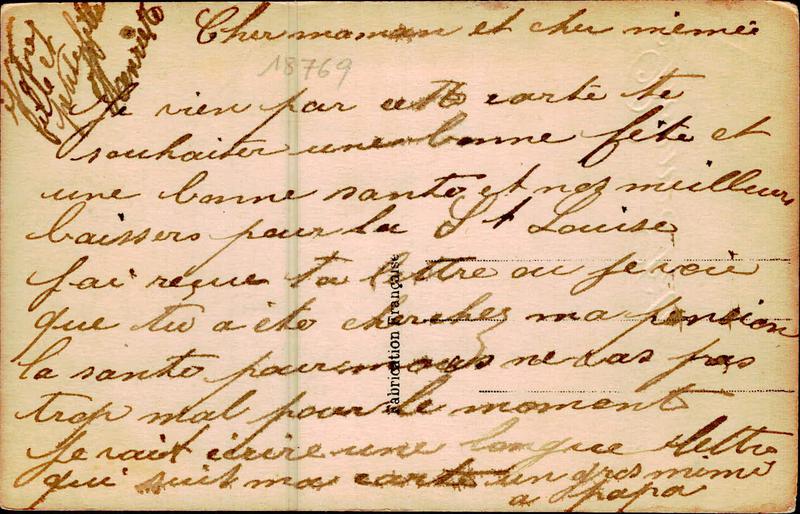 Cher maman et cher mémée
18769
Je vien par cette carte te
souhaiter une bonne fête et
une bonne santo et nos meilleurs
baissers pour la St Louise
J'ai reçue ta lettre ou je voie
que tu a éto cherchez ma pension
la santo pour nous ne vas pas
trop mal pour le moment
Je vait écrire une longue lettre
qui suit ma carte un gros mimi
a papa
fille et
Henriette
Fabrication Française